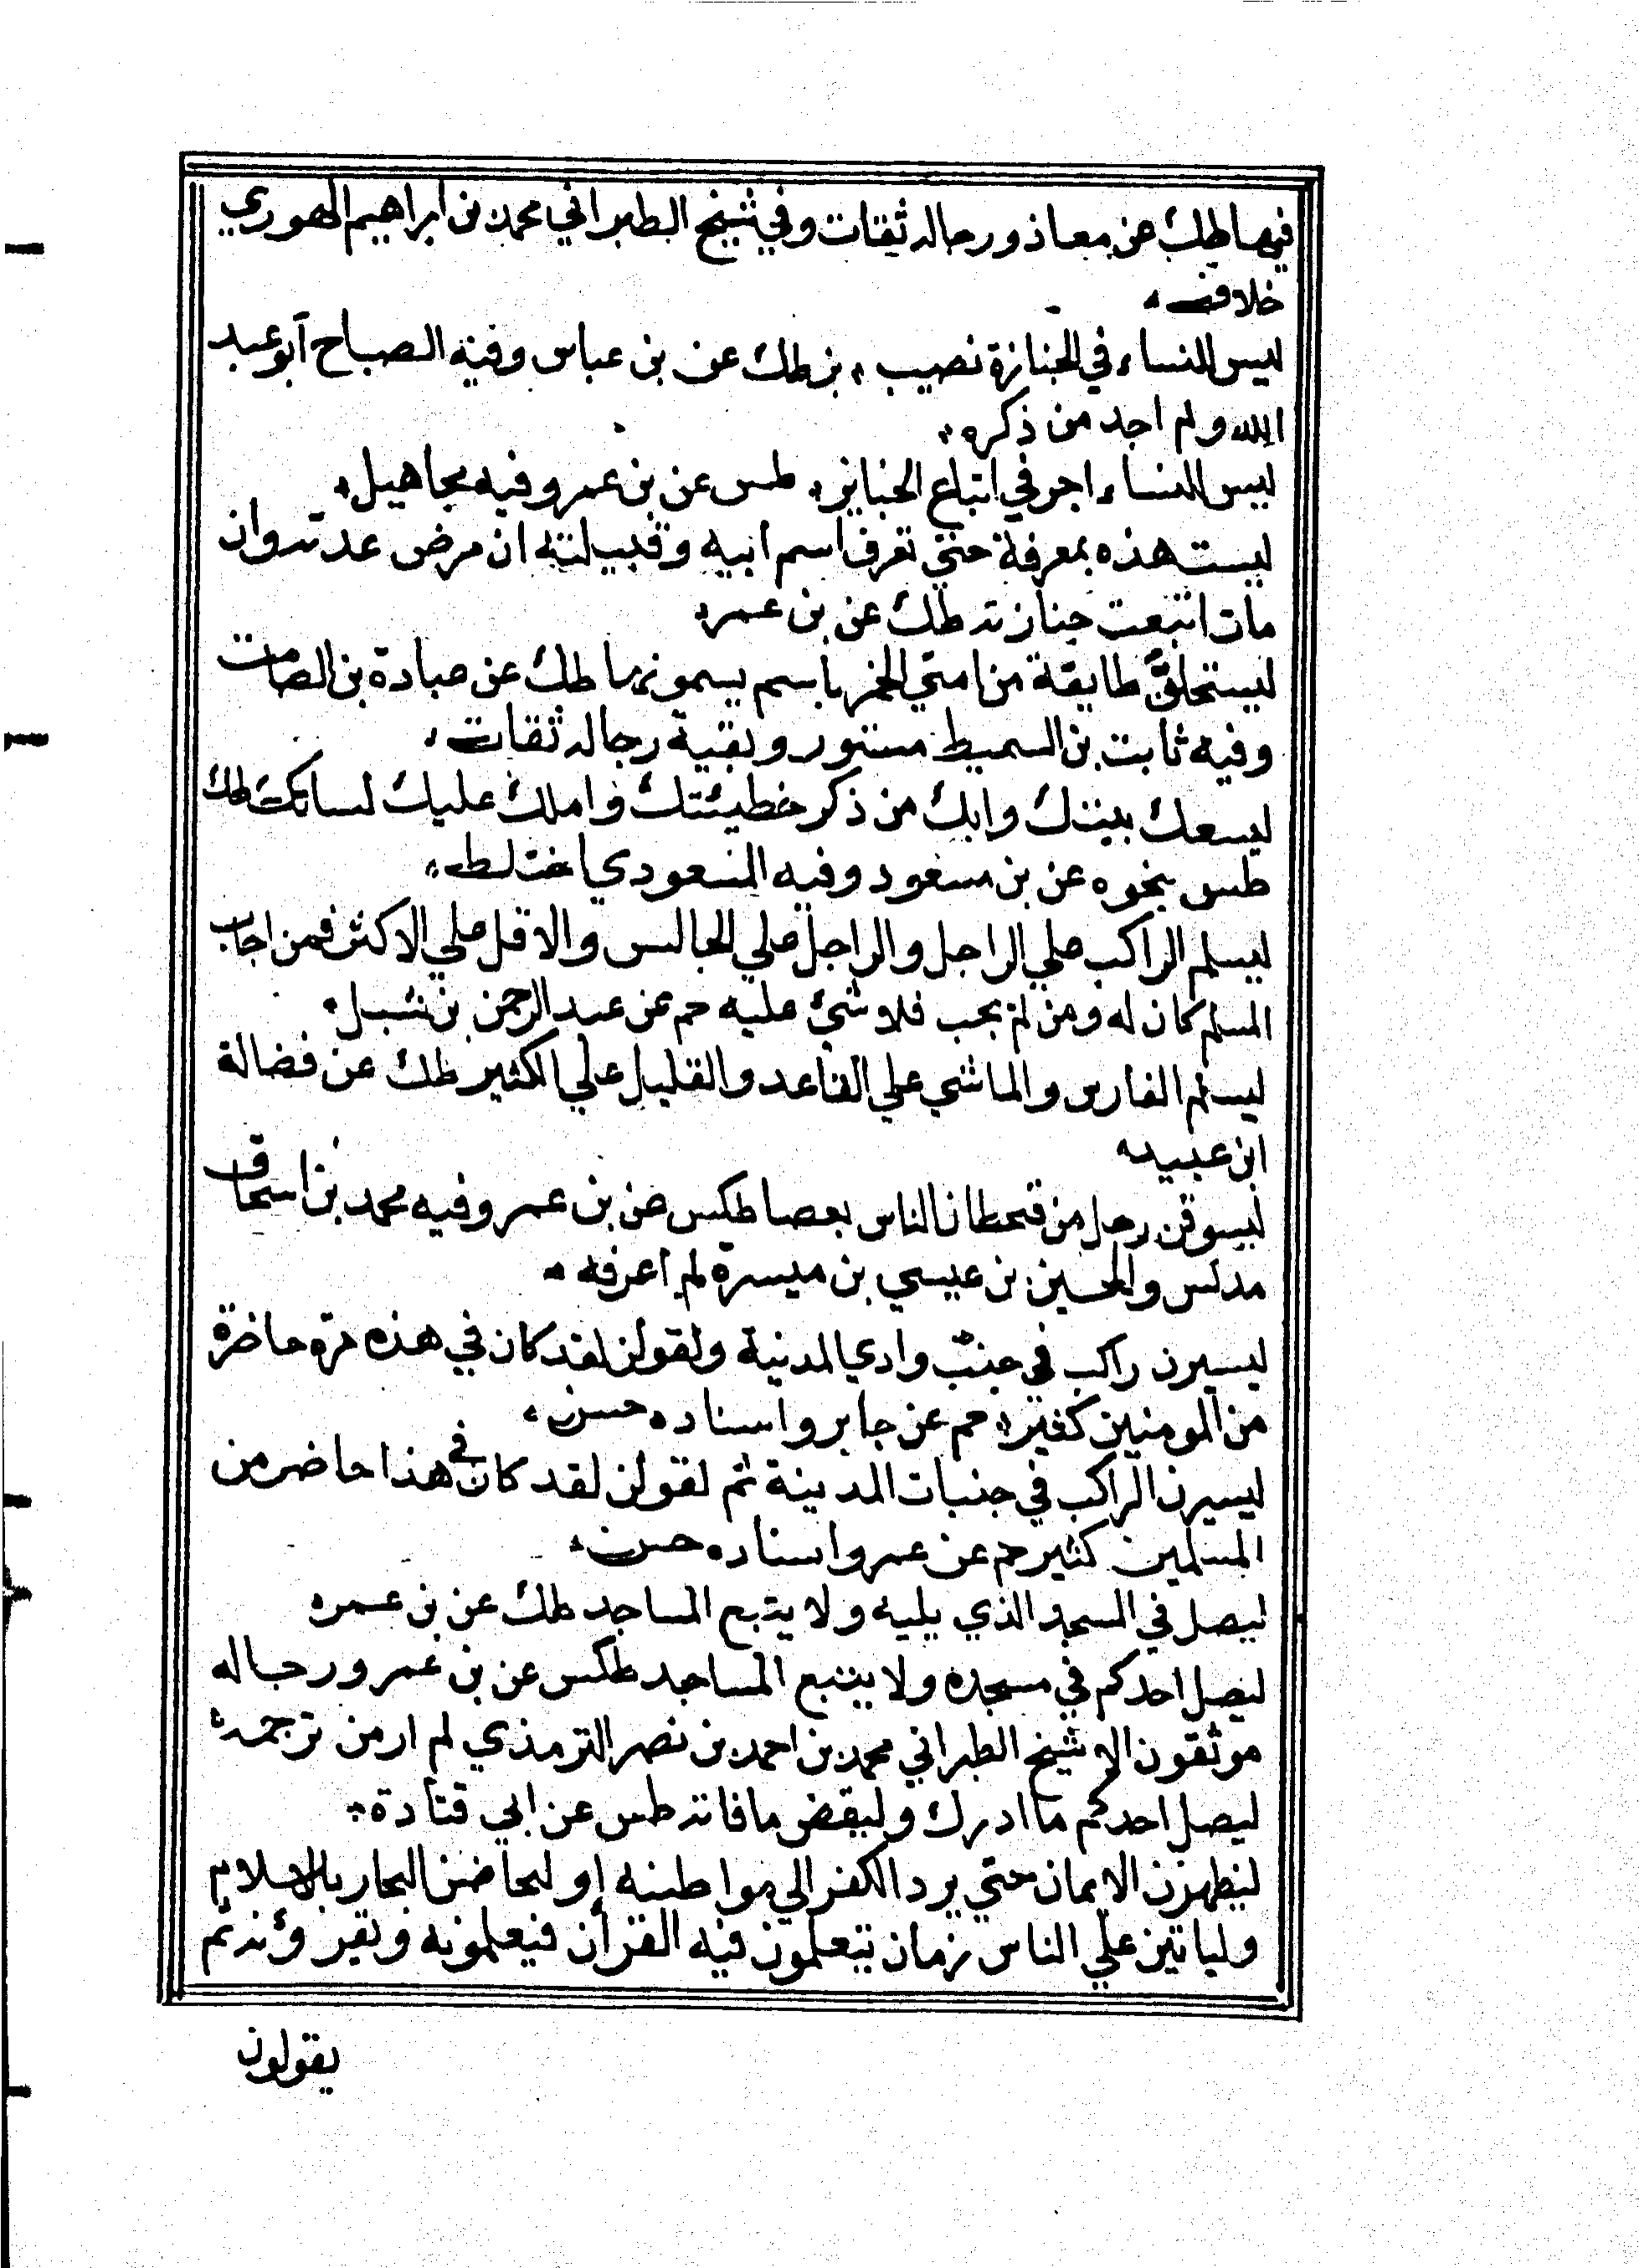 فيها طك عن معاذ ورجاله ثقات وفي شيخ الطبراني محمد بن ابراهيم الصوري
خلاف
ليس للنساء في الجنازة نصيب بز طك عن بن عباس وفيه الصباح ابو عبد
الله ولم اجد من ذكره
ليس للنساء اجر في اتباع الجنايز طس عن بن عمر وفيه مجاهيل
ليست هذه بمعرفة حتي تعرف اسم ابيه وقبيلته ان مرض عدته وان
مات اتبعت جنازته طك عن بن عمر
ليستحلن طايفة من امتي الخمر باسم يسمونها طك عن عبادة بن الصامت
وفيه ثابت بن السميط مستور وبقية رجاله ثقات
ليسعك بيتك وابك من ذكر خطيئتك واملك عليك لسانك طك
طس بنحوه عن بن مسعود وفيه المسعودي اختلط
ليسلم الراكب علي الراجل والراجل علي الجالس والاقل علي الاكثر فمن اجاب
المسلم كان له ومن لم يجب فلا شيء عليه حم عن عبد الرحمن بن شبل
ليسلم الفارس والماشي علي القاعد والقليل علي الكثير طك عن فضالة
ابن عبيد
ليسوقن رجل من قحطان الناس بعصا طكس عن بن عمر وفيه محمد بن اسحاق
مدلس والحسين بن عيسي بن ميسرة لم اعرفه
ليسيرن راكب في جنب وادي المدينة ولقولن لقد كان في هذه مرة حاضرة
من المومنين كثير حم عن جابر واسناده حسن
ليسيرن الراكب في جنبات المدينة ثم لقولن لقد كان في هذا حاضر من
المسلمين كثير حم عن عمر واسناده حسن
ليصل في المسجد الذي يليه ولا يتبع المساجد طك عن بن عمر
ليصل احدكم في مسجده ولا يتتبع المساجد طكس عن بن عمر ورجاله
موثقون الا شيخ الطبراني محمد بن احمد بن نصر الترمذي لم ار من ترجمه
ليصل احدكم ما ادرك وليقض ما فاته طس عن ابي قتادة
ليظهرن الايمان حتي يرد الكفر الي مواطنه او ليخاضن البحار بالاسلام
ولياتين علي الناس زمان يتعلمون فيه القرآن فيعلمونه ويقرؤنه ثم
يقولون